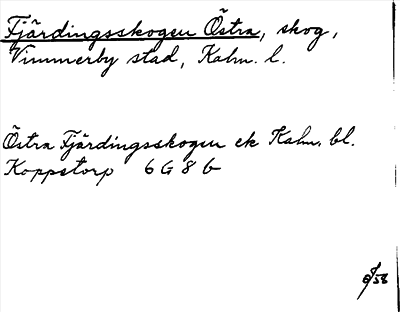 Fjärdingsskogen Östra, skog,
Vimmerby stad, Kalm. l.
Östra Fjärdingsskogen ek Kalm. bl.
Koppetorp 6 G 8 b